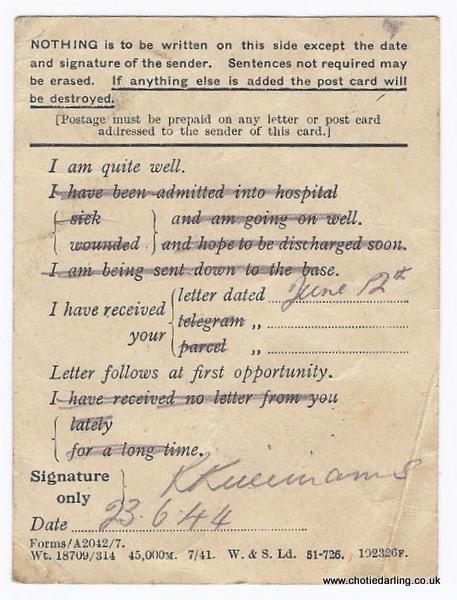 NOTHING is to be written on this side except the date
and signature of the sender. Sentences not required may
be erased. If anything else is added the post card will
be destroyed.
[Postage must be prepaid on any letter or post card
addressed to the sender of this card.]
I am quite well.
I have been admitted into hospital
sick } and am going on well.
wounded } and hope to be discharged soon.
I am being sent down to the base.
I have received your { letter dated June 12th
telegram „
parcel „
Letter follows at first opportunity.
I have received no letter from you
lately
for a long time.
Signature only }
Date 23.6.44
Forms/A2042/7.
Wt. 18709/314 45,000M. 7/41. W. & S. Ld. 51-726. 102326F.
www.chotiedarling.co.uk